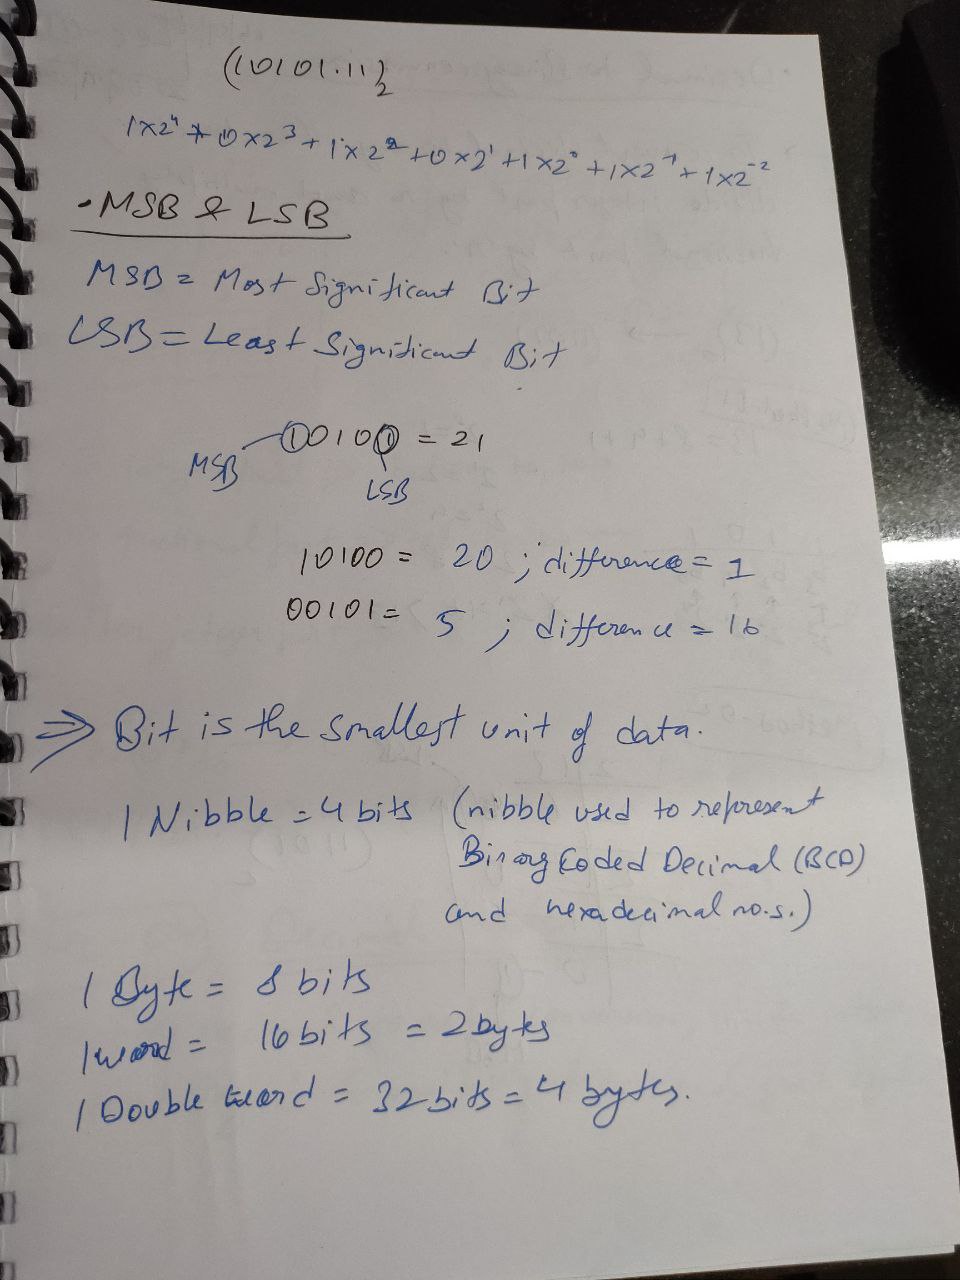 (10101.11)₂
1×2⁴ + 0×2³ + 1×2² + 0×2¹ + 1×2⁰ + 1×2⁻¹ + 1×2⁻²
• MSB & LSB
MSB = Most Significant Bit
LSB = Least Significant Bit
10101 = 21
MSB
LSB
10100 = 20 ; difference = 1
00101 = 5 ; difference = 16
⇒ Bit is the smallest unit of data.
1 Nibble = 4 bits (nibble used to represent
Binary Coded Decimal (BCD)
and hexadecimal no.s.)
1 Byte = 8 bits
1 word = 16 bits = 2 bytes
1 Double word = 32 bits = 4 bytes.